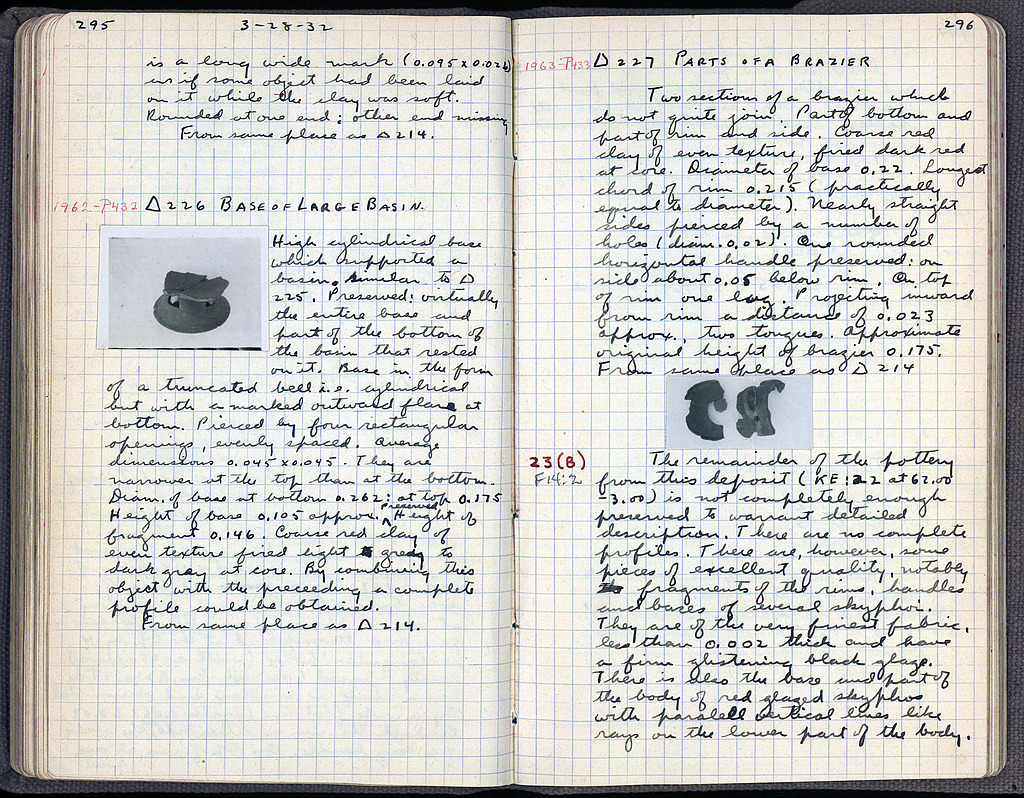 295
3-28-32
is a long wide mark (0.095 x 0.026)
as if some object had been laid
on it while the clay was soft.
Rounded at one end; other end missing
From same place as Δ 214.
1962-P432 Δ 226 BASE OF LARGE BASIN.
High cylindrical base
which supported a
basin, similar to Δ
225. Preserved: virtually
the entire base and
part of the bottom of
the basin that rested
on it. Base in the form
of a truncated bell i.e. cylindrical
but with a marked outward flare at
bottom. Pierced by four rectangular
openings, evenly spaced. Average
dimensions 0.045 x 0.045. They are
narrower at the top than at the bottom.
Diam. of base at bottom 0.262; at top 0.175
Height of base 0.105 approx. Preserved Height of
fragment 0.146. Coarse red clay of
even texture fired light gray to
dark gray at core. By combining this
object with the preceeding a complete
profile could be obtained.
From same place as Δ 214.
296
1963-P433 Δ 227 PARTS OF A BRAZIER
Two sections of a brazier which
do not quite join. Part of bottom and
part of rim and side. Coarse red
clay of even texture, fired dark red
at core. Diameter of base 0.22. Longest
chord of rim 0.215 (practically
equal to diameter). Nearly straight
sides pierced by a number of
holes (diam. 0.02). One rounded
horizontal handle preserved: on
side about 0.05 below rim. On top
of rim one lug. Projecting inward
from rim a distance of 0.023
approx., two tongues. Approximate
original height of brazier 0.175.
From same place as Δ 214
23(B)
F14:2
The remainder of the pottery
from this deposit (KE:22 at 62.00
-3.00) is not completely enough
preserved to warrant detailed
description. There are no complete
profiles. There are, however, some
pieces of excellent quality, notably
fragments of the rims, handles
and bases of several skyphoi.
They are of the very finest fabric,
less than 0.002 thick and have
a firm glistening black glaze.
There is also the base and part of
the body of red glazed skyphos
with paralell vertical lines like
rays on the lower part of the body.